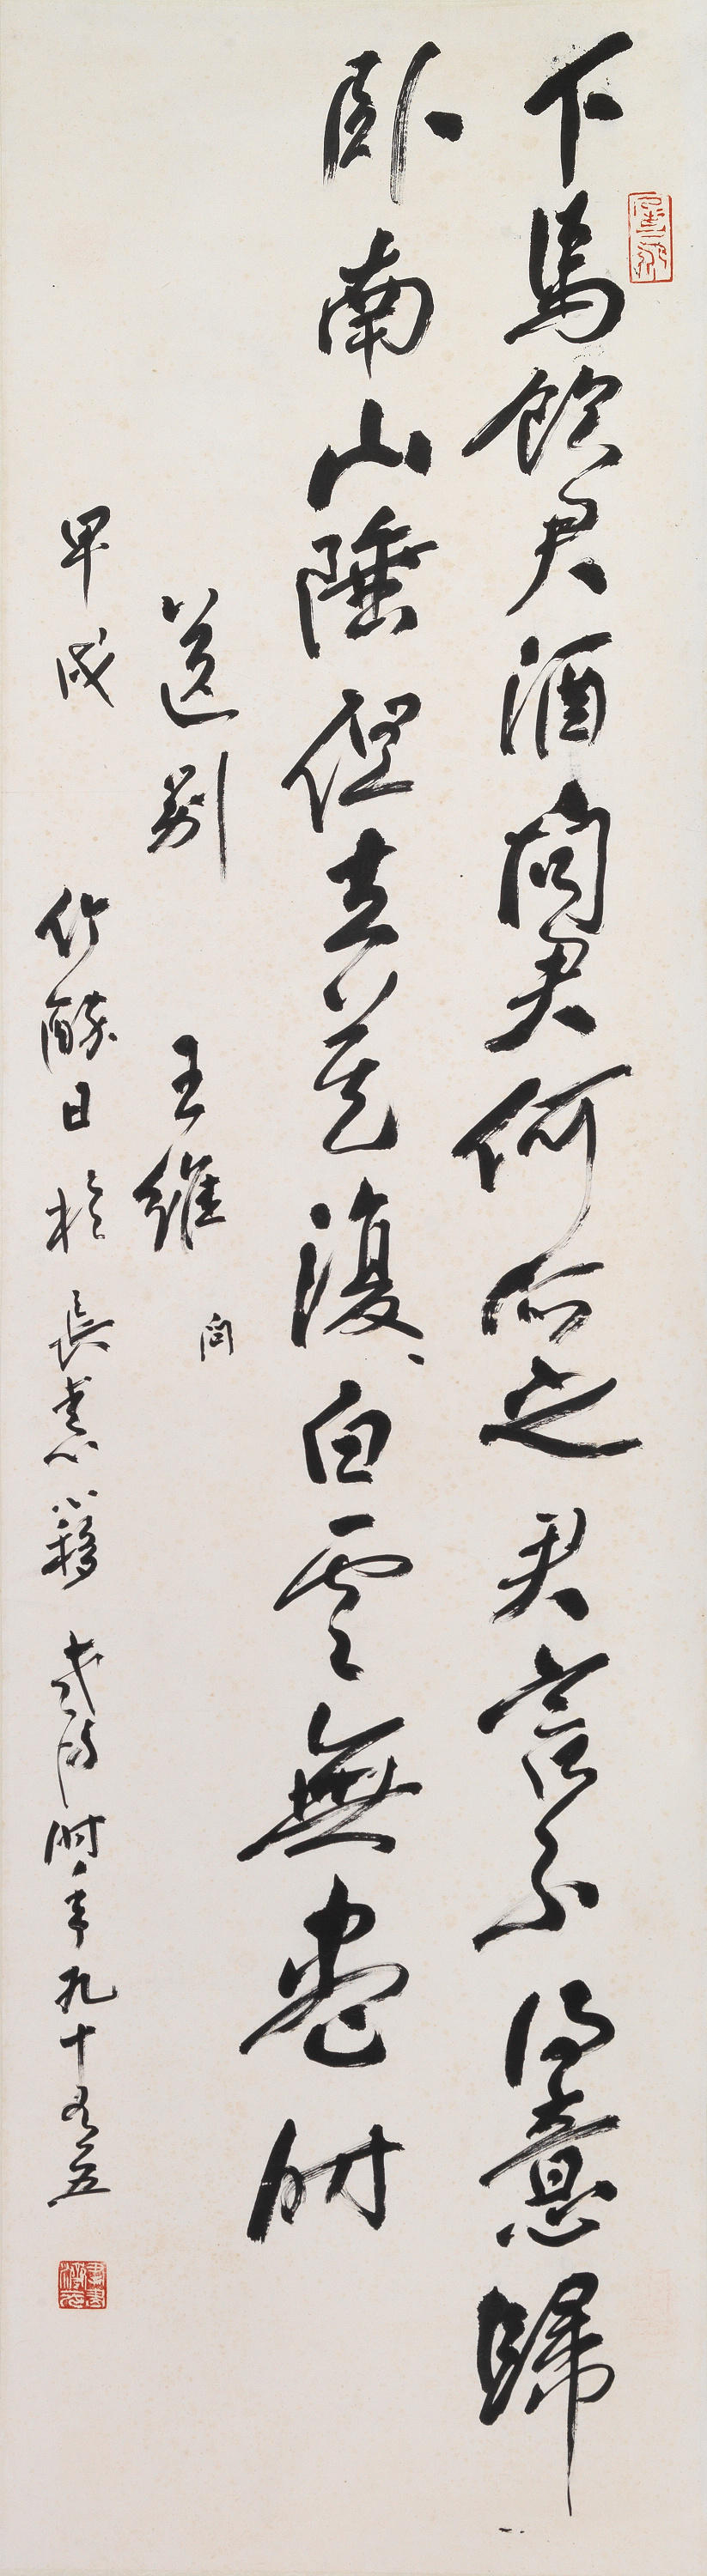 下馬飲君酒問君何所之君言不得意歸
臥南山陲但去莫復、白雲無盡時
送別 王維
問
甲戌 竹醉日於長 時年九十有五